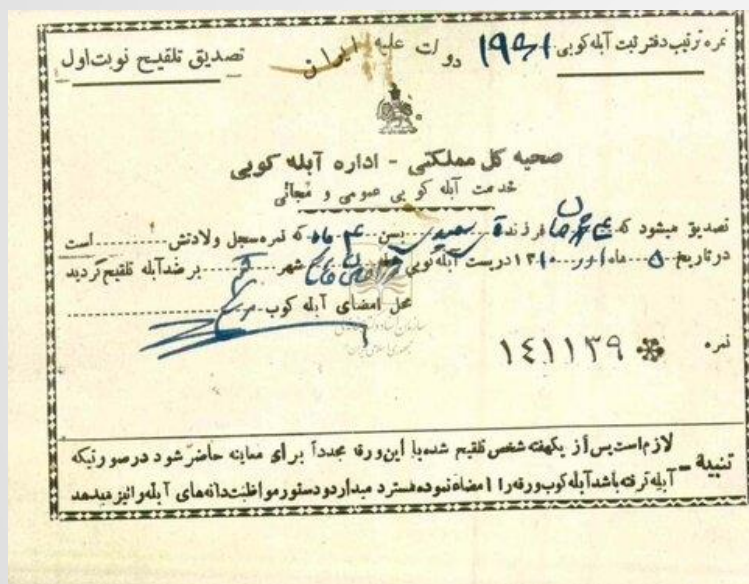 نمره ترتیب دفتر ثبت آبله کوبی ۱۹۶۱
دولت علیه ایران
تصدیق تلقیح نوبت اول
صحیه کل مملکتی - اداره آبله کوبی
خدمت آبله کوبی عمومی و مجانی
تصدیق میشود که فرزند بسن ۴ ماه که نمره سجل ولادتش است
در تاریخ ۵ ماه ۱۳۱۰ در پست آبله کوبی شهر بر ضد آبله تلقیح گردید
محل امضای آبله کوب
نمره ۱۴۱۱۳۹
تنبیه - لازم است پس از یکهفته شخص تلقیح شده با این ورقه مجدداً برای معاینه حاضر شود در صورتیکه
آبله گرفته باشد آبله کوب ورقه را امضاء نموده مسترد میدارد و دستور مواظبت دانه های آبله را نیز میدهد